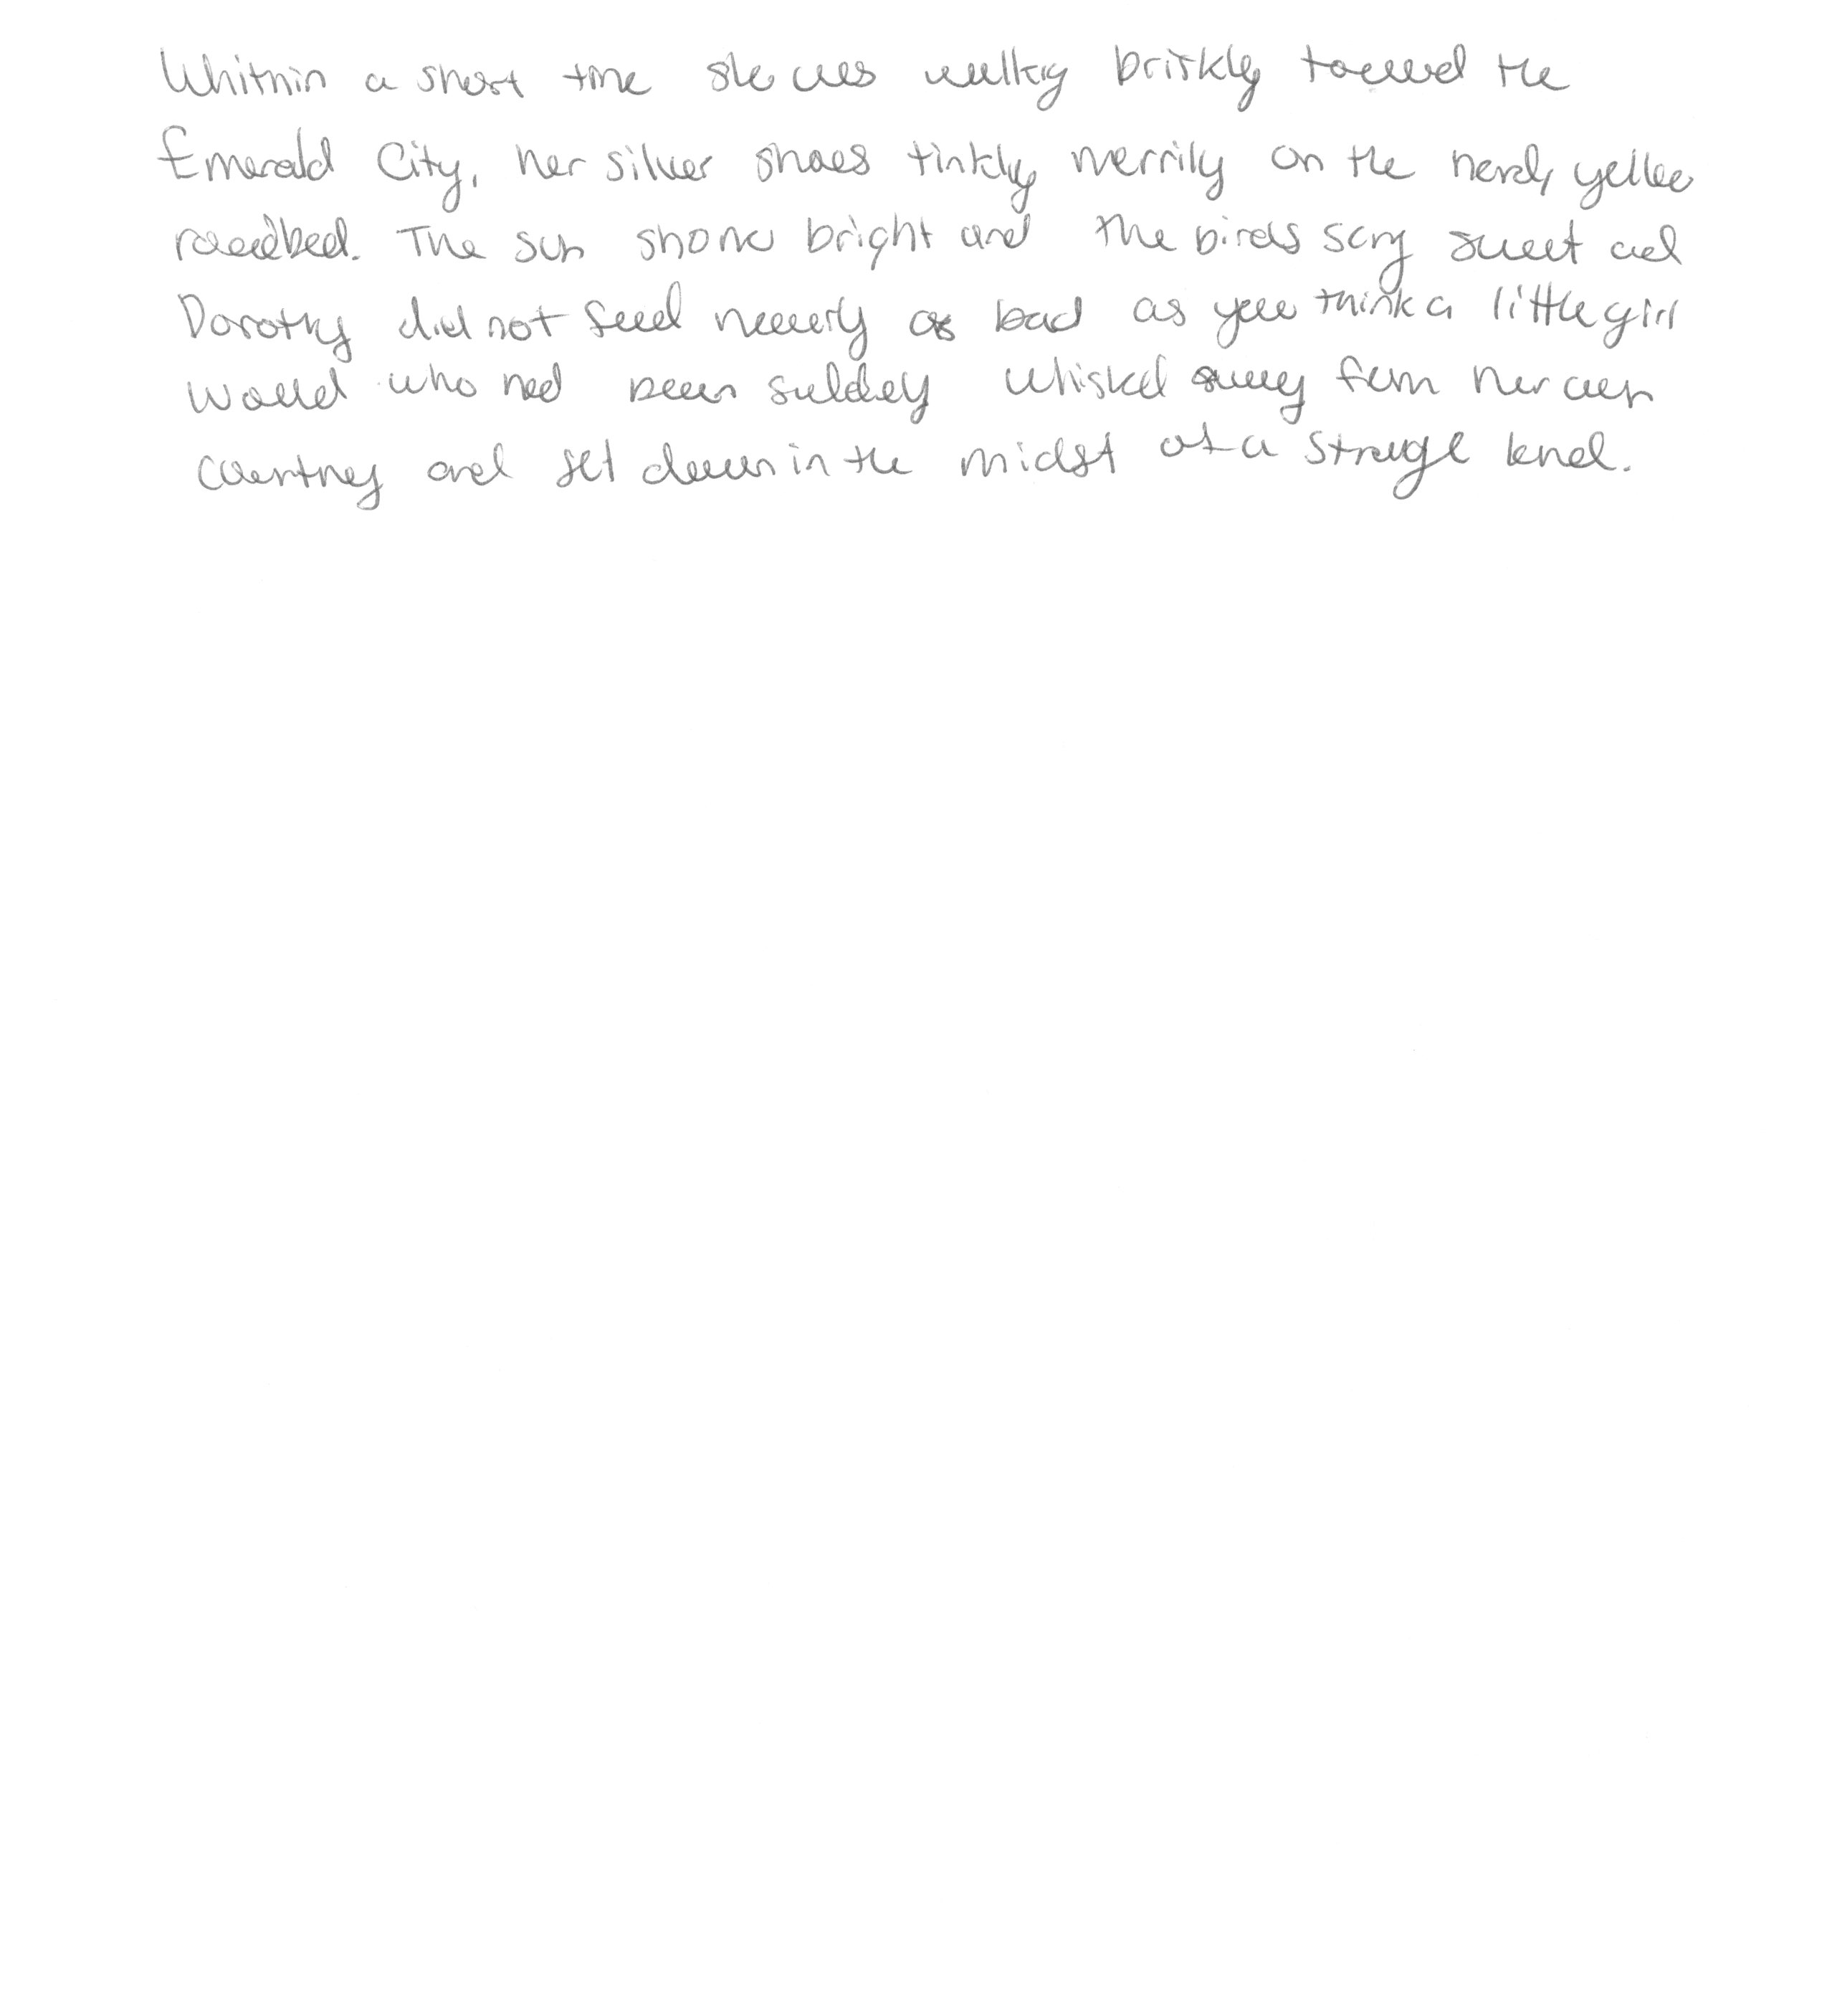 Whithin a short time she was walking briskly toward the
Emerald City, her silver shoes tinkling merrily on the hard, yellow
roadbed. The sun shone bright and the birds sang sweet and
Dorothy did not feel nearly as bad as you think a little girl
would who had been suddenly whisked away from her own
country and set down in the midst of a strange land.